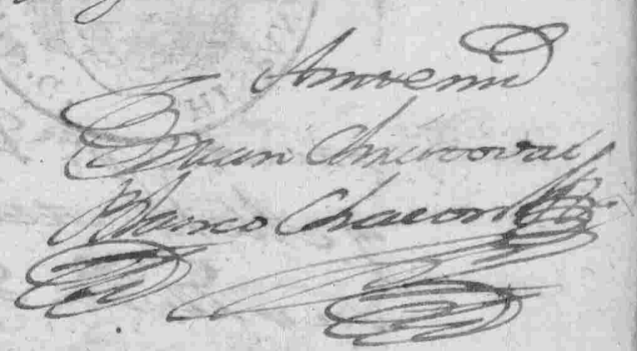 Antemi
Juan Christoval
Blanco Chacon